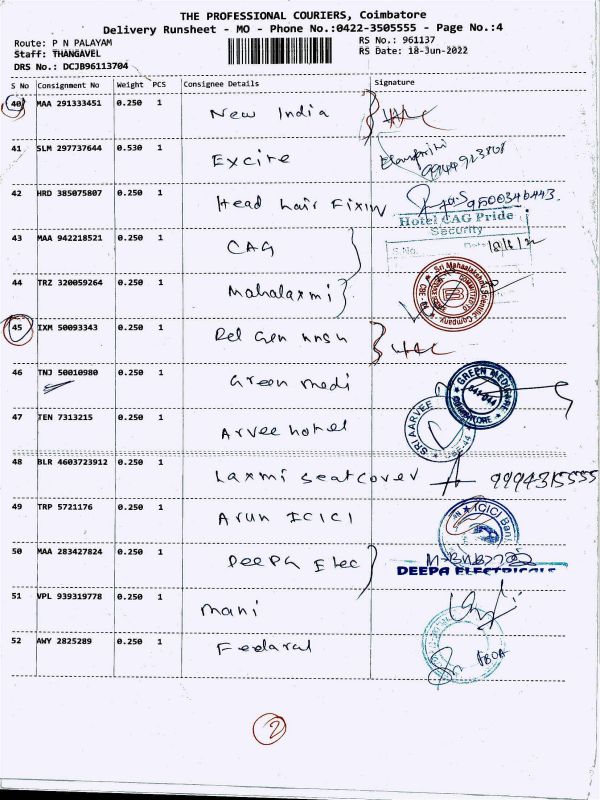 THE PROFESSIONAL COURIERS, Coimbatore
Delivery Runsheet - MO - Phone No.:0422-3505555 - Page No.:4
Route: P N PALAYAM
RS No.: 961137
Staff: THANGAVEL
RS Date: 18-Jun-2022
DRS No.: DCJB96113704
S No Consignment No Weight PCS Consignee Details Signature
40 MAA 291333451 0.250 1 New India
41 SLM 297737644 0.530 1 Excire
42 HRD 385075807 0.250 1 Head hair Fixin
9500346443.
Hotel CAG Pride
Security
S No. Date 18/6/22
43 MAA 942218521 0.250 1 CAG
44 TRZ 320059264 0.250 1 Mahalaxmi
45 IXM 50093343 0.250 1
46 TNJ 50010980 0.250 1 Green medi
47 TEN 7313215 0.250 1 Arvee hotel
SRI AARVEE
48 BLR 4603723912 0.250 1 Laxmi seatcover 9994315555
49 TRP 5721176 0.250 1 Arun ICICI
ICICI Bank
50 MAA 283427824 0.250 1 Deepa Elec
DEEPA ELECTRICALS
51 VPL 939319778 0.250 1 mani
52 AWY 2825289 0.250 1 Federal
2